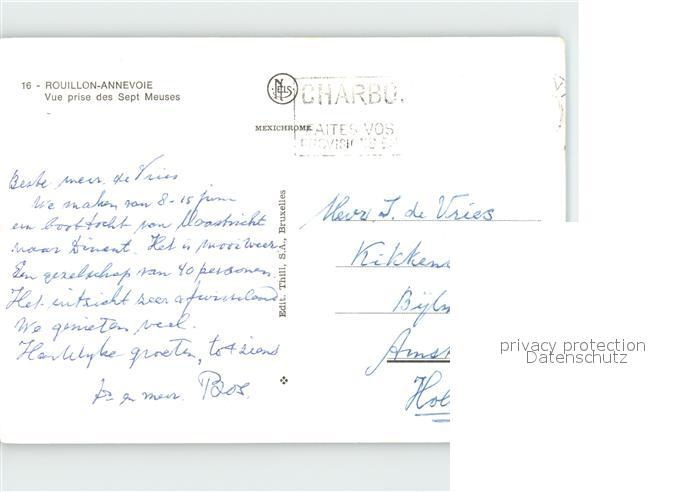 16 - ROUILLON-ANNEVOIE
Vue prise des Sept Meuses
NELS
MEXICHROME
CHARBO
FAITES VOS
PROVISIONS
Beste mevr. de Vries
We maken van 8-15 juni
een boottocht van Maastricht
naar Dinant. Het is mooi weer
Een gezelschap van 40 personen.
Het uitzicht zeer afwisselend
We genieten veel.
Hartelijke groeten, tot ziens
en mevr. Bos.
Edit. Thill, S.A., Bruxelles
Mevr J. de Vries
Kikkens
Bijlm
Amst
Hol
privacy protection
Datenschutz